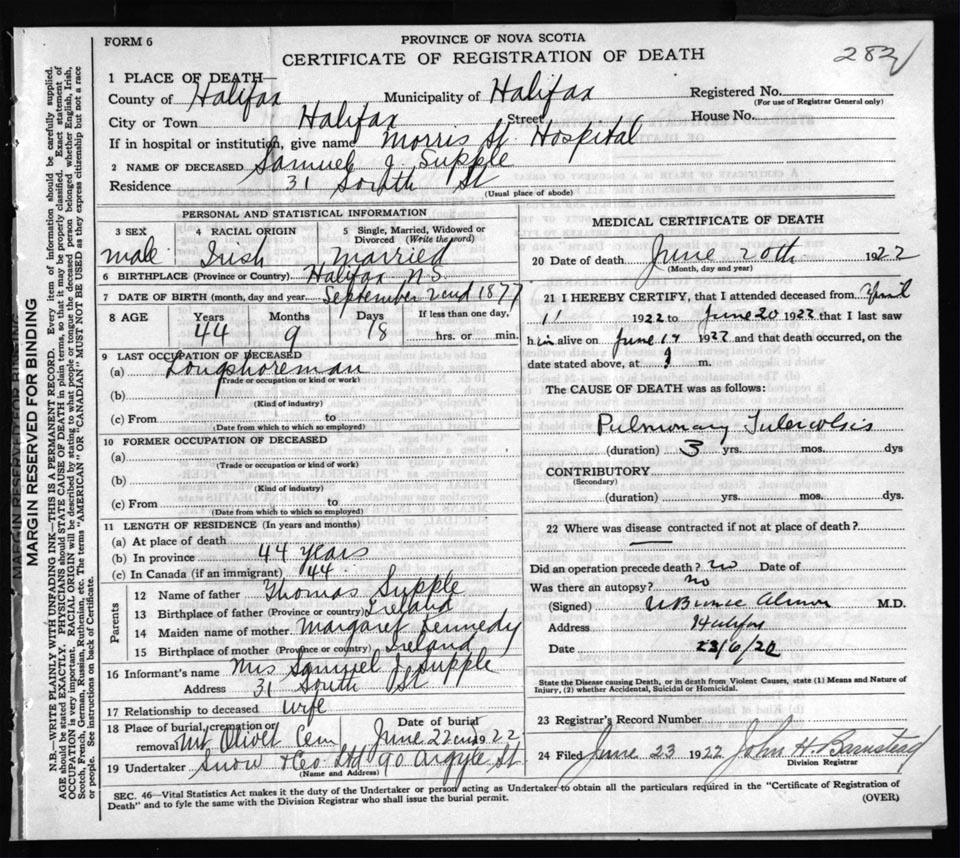 FORM 6
PROVINCE OF NOVA SCOTIA
CERTIFICATE OF REGISTRATION OF DEATH
282
1 PLACE OF DEATH—
County of Halifax Municipality of Halifax Registered No.
(For use of Registrar General only)
City or Town Halifax Street House No.
If in hospital or institution, give name Morris St Hospital
2 NAME OF DECEASED Samuel J. Supple
Residence 31 South St
(Usual place of abode)
PERSONAL AND STATISTICAL INFORMATION
3 SEX 4 RACIAL ORIGIN 5 Single, Married, Widowed or Divorced (Write the word)
male Irish Married
6 BIRTHPLACE (Province or Country) Halifax N.S.
7 DATE OF BIRTH (month, day and year) September 2nd 1877
8 AGE Years Months Days If less than one day,
44 9 18 hrs. or min.
9 LAST OCCUPATION OF DECEASED
(a) Longshoreman
(Trade or occupation or kind or work)
(b)
(Kind of industry)
(c) From to
(Date from which to which so employed)
10 FORMER OCCUPATION OF DECEASED
(a)
(Trade or occupation or kind of work)
(b)
(Kind of industry)
(c) From to
(Date from which to which so employed)
11 LENGTH OF RESIDENCE (In years and months)
(a) At place of death
(b) In province 44 years
(c) In Canada (if an immigrant) 44
Parents
12 Name of father Thomas Supple
13 Birthplace of father (Province or country) Ireland
14 Maiden name of mother Margaret Kennedy
15 Birthplace of mother (Province or country) Ireland
16 Informant's name Mrs Samuel J. Supple
Address 31 South St
17 Relationship to deceased wife
18 Place of burial, cremation or removal Mt Olivet Cem Date of burial June 22nd 1922
19 Undertaker Snow & Co Ltd 90 Argyle St
(Name and Address)
MEDICAL CERTIFICATE OF DEATH
20 Date of death June 20th 1922
(Month, day and year)
21 I HEREBY CERTIFY, that I attended deceased from April
11 1922 to June 20 1922 that I last saw
him alive on June 19 1922 and that death occurred, on the
date stated above, at m.
The CAUSE OF DEATH was as follows:
Pulmonary Tuberculosis
(duration) 3 yrs. mos. dys
CONTRIBUTORY
(Secondary)
(duration) yrs. mos. dys.
22 Where was disease contracted if not at place of death?
Did an operation precede death? no Date of
Was there an autopsy? no
(Signed) M.D.
Address Halifax
Date 23/6/22
State the Disease causing Death, or in death from Violent Causes, state (1) Means and Nature of
Injury, (2) whether Accidental, Suicidal or Homicidal.
23 Registrar's Record Number
24 Filed June 23 1922 John H. Barnstead
Division Registrar
SEC. 46—Vital Statistics Act makes it the duty of the Undertaker or person acting as Undertaker to obtain all the particulars required in the "Certificate of Registration of
Death" and to fyle the same with the Division Registrar who shall issue the burial permit. (OVER)
MARGIN RESERVED FOR BINDING
N.B.—WRITE PLAINLY WITH UNFADING INK—THIS IS A PERMANENT RECORD. Every item of information should be carefully supplied.
AGE should be stated EXACTLY. PHYSICIANS should STATE CAUSE OF DEATH in plain terms, so that it may be properly classified. Exact statement of
OCCUPATION is very important. RACIAL ORIGIN will be described by stating to what people or tongue the deceased person belonged whether English, Irish,
Scotch, French, German, Russian, Ruthenian, etc. The terms "AMERICAN" OR "CANADIAN" MUST NOT BE USED as they express citizenship but not a race
or people. See instructions on back of Certificate.